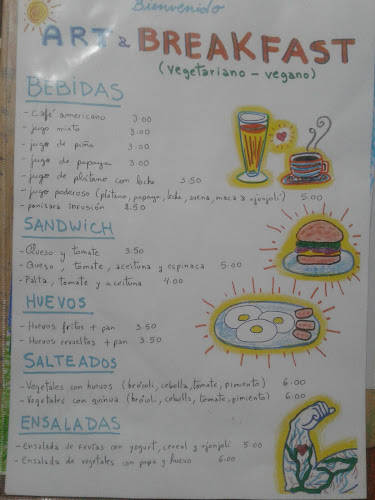 Bienvenido
ART & BREAKFAST
(vegetariano - vegano)
BEBIDAS
- Café americano 3.00
- jugo mixto 3.00
- jugo de piña 3.00
- jugo de papaya 3.00
- jugo de plátano con leche 3.50
- jugo poderoso (plátano, papaya, leche, avena, maca & ajonjolí) 5.00
- panisara infusión 2.50
SANDWICH
- Queso y tomate 3.50
- Queso, tomate, aceituna y espinaca 5.00
- Palta, tomate y aceituna 4.00
HUEVOS
- Huevos fritos + pan 3.50
- Huevos revueltos + pan 3.50
SALTEADOS
- Vegetales con huevos (brócoli, cebolla, tomate, pimiento) 6.00
- Vegetales con quinua (brócoli, cebolla, tomate, pimiento) 6.00
ENSALADAS
- Ensalada de frutas con yogurt, cereal y ajonjolí 5.00
- Ensalada de vegetales con papa y huevo 6.00